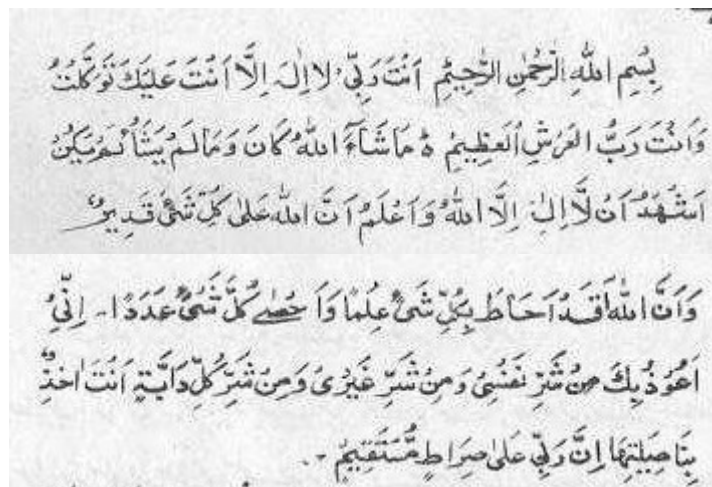 بِسْمِ اللهِ الرَّحْمٰنِ الرَّحِيْمِ اَنْتَ رَبِّيْ لَا اِلٰهَ اِلَّا اَنْتَ عَلَيْكَ تَوَكَّلْتُ
وَاَنْتَ رَبُّ الْعَرْشِ الْعَظِيْمِ ه مَا شَآءَ اللهُ كَانَ وَمَا لَمْ يَشَأْ لَمْ يَكُنْ
اَشْهَدُ اَنْ لَّا اِلٰهَ اِلَّا اللهُ وَاَعْلَمُ اَنَّ اللهَ عَلٰى كُلِّ شَيْءٍ قَدِيْرٌ
وَاَنَّ اللهَ قَدْ اَحَاطَ بِكُلِّ شَيْءٍ عِلْمًا وَاَحْصٰے كُلَّ شَيْءٍ عَدَدًا۔ اِنِّيْ
اَعُوْذُ بِكَ مِنْ شَرِّ نَفْسِيْ وَمِنْ شَرِّ غَيْرِيْ وَمِنْ شَرِّ كُلِّ دَابَّةٍ اَنْتَ اٰخِذٌ
بِنَاصِيَتِهَا اِنَّ رَبِّيْ عَلٰى صِرَاطٍ مُّسْتَقِيْمٍ ۔۔